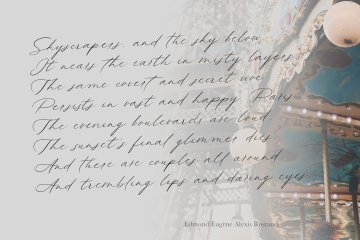 Skyscrapers, and the sky below
It nears the earth in misty layers
The same covert and secret woe
Persists in vast and happy Paris
The evening boulevards are loud
The sunset's final glimmer dies
And there are couples all around
And trembling lips and daring eyes
Edmond Eugène Alexis Rostand